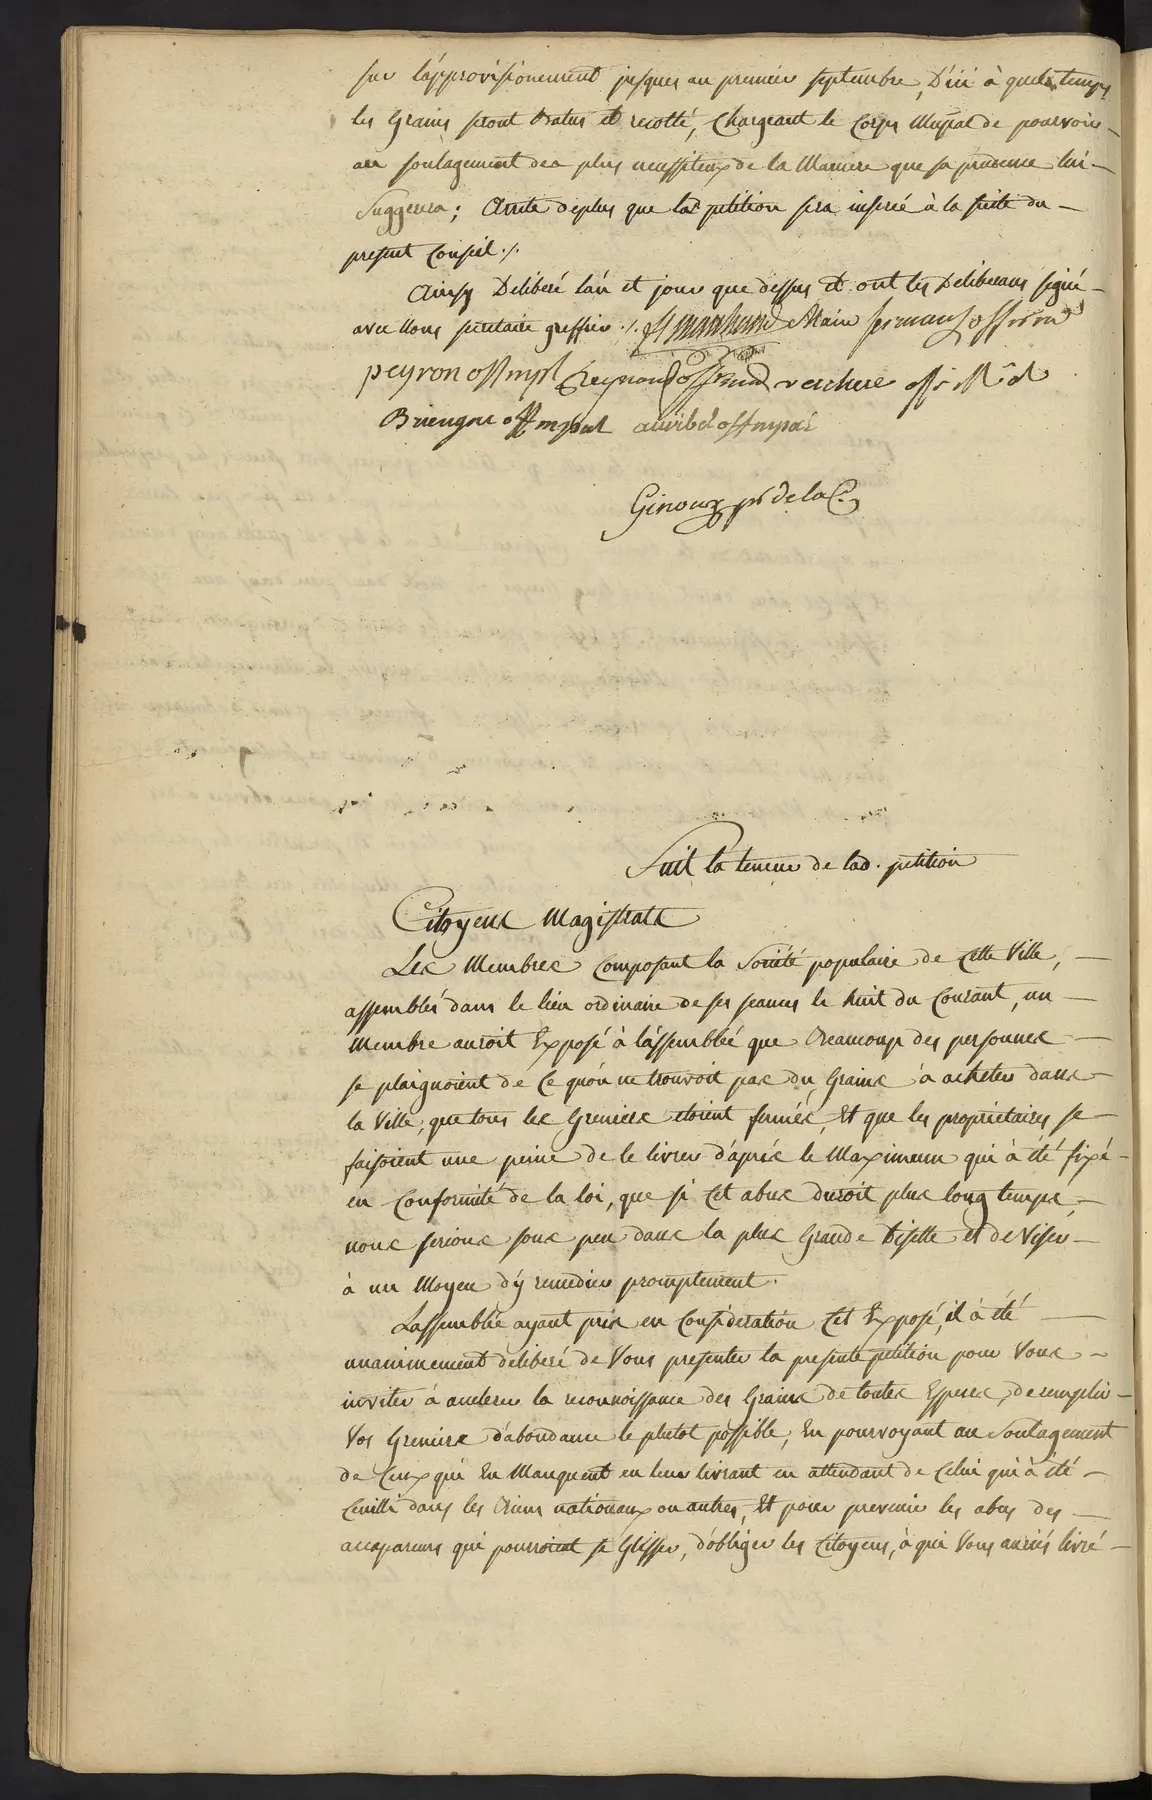 sur l'approvisionement jusques au premier septembre, D'ici à quel temps
les Grains seront Batus et recolté, Chargeant le Corps Mupal de pourvoir
au soulagement des plus necessiteux de la Maniere que sa prudence lui
Suggerera; Arrete deplus que lad petition sera inserée à la suite du
present Conseil ./.
Ainsy Deliberé l'an et jour que dessus et ont les Deliberans signé
avec Nous secretaire greffier ./. Marchand Alain
peyron off mpl Reynaud off mud verchere off
off mpal off mpal
Ginoux pr de la C.
Suit la teneur de lad. petition
Citoyens Magistrats
Les Membres Composant la Société populaire de Cette Ville,
assemblés dans le lieu ordinaire de ses seances le huit du Courant, un
Membre auroit Exposé à l'assemblée que Beaucoup des personnes
se plaignoient de Ce qu'on ne trouvoit pas du Grains à acheter dans
la Ville, que tous les Greniers étoient fermés, Et que les proprietaires se
faisoient une peine de le livrer d'après le Maximum qui à été fixé
en Conformité de la loi, que si Cet abus duroit plus long temps,
nous serions sous peu dans la plus Grande Disette et de Viser
à un Moyen d'y remedier promptement.
L'assemblée ayant pris en Consideration Cet Exposé, il à été
unanimement deliberé de Vous presenter la presente petition pour Vous
inviter à accelerer la reconnoissance des Grains de toutes Especes, de remplir
Vos Greniers d'abondance le plutot possible, En pourvoyant au Soulagement
de Ceux qui En Manquent en leur livrant en attendant de Celui qui à été
Ceuilli dans les Biens nationaux ou autres, Et pour prevenir les abus des
accapareurs qui pourroient se Glisser, d'obliger les Citoyens, à qui Vous auriés livré